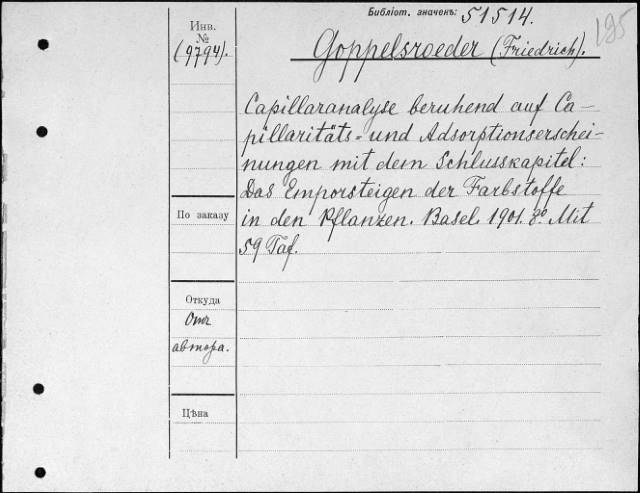 Библіот. значекъ: 51514.
195
Инв.
№
(9794).
Goppelsroeder (Friedrich).
Capillaranalyse beruhend auf Ca-
pillaritäts- und Adsorptionserschei-
nungen mit dem Schlusskapitel:
Das Emporsteigen der Farbstoffe
in den Pflanzen. Basel. 1901. 8º. Mit
59 Taf.
По заказу
Откуда
Отъ
автора.
Цѣна